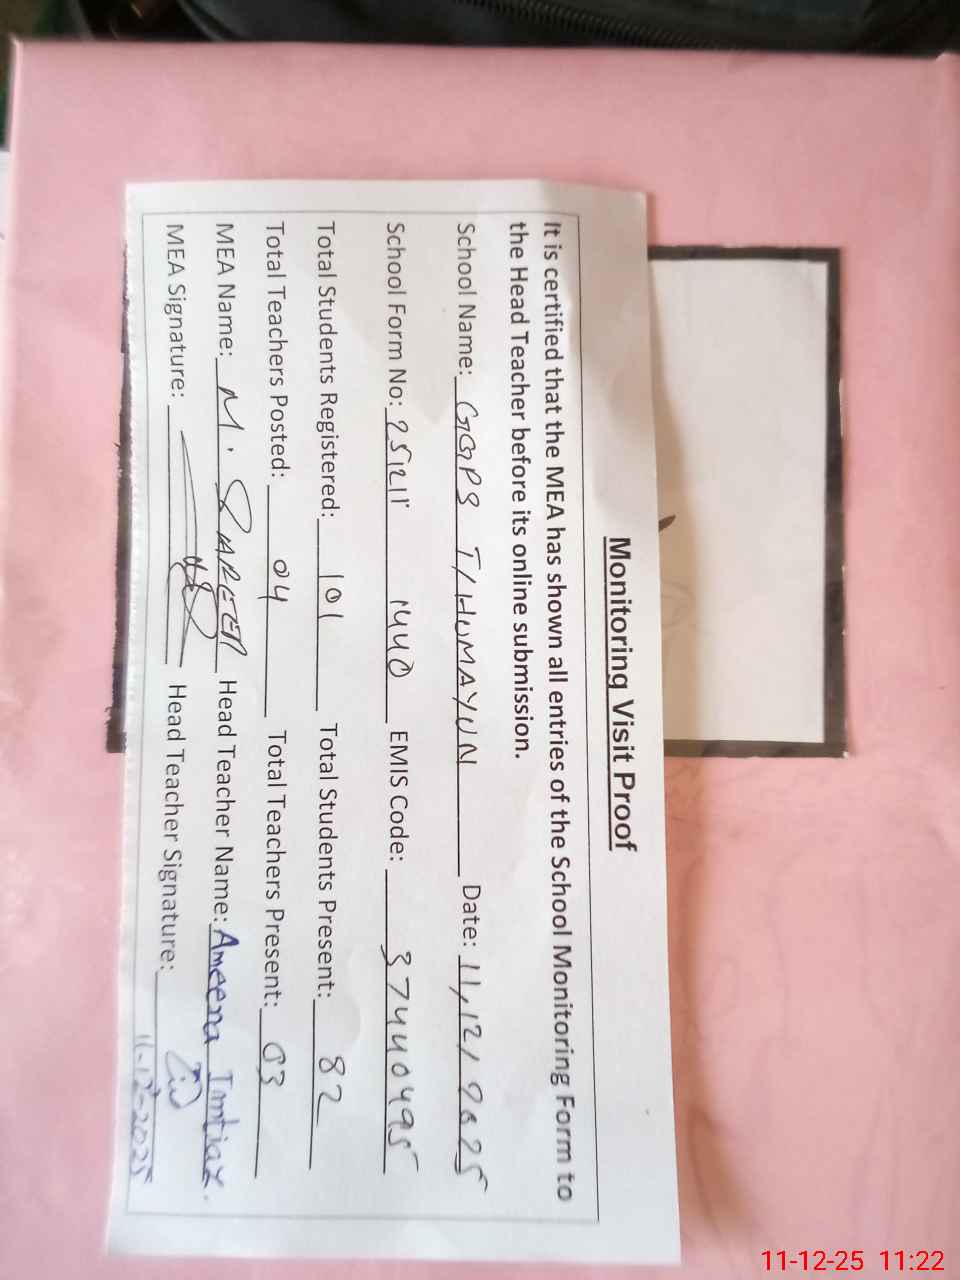 Monitoring Visit Proof
It is certified that the MEA has shown all entries of the School Monitoring Form to
the Head Teacher before its online submission.
School Name: GGPS T/HUMAYUN Date: 11/12/2025
School Form No: 251211 1440 EMIS Code: 37440495
Total Students Registered: 101 Total Students Present: 82
Total Teachers Posted: 04 Total Teachers Present: 03
MEA Name: M. Head Teacher Name: Ameena Imtiaz.
MEA Signature: Head Teacher Signature:
11-12-2025
11-12-25 11:22